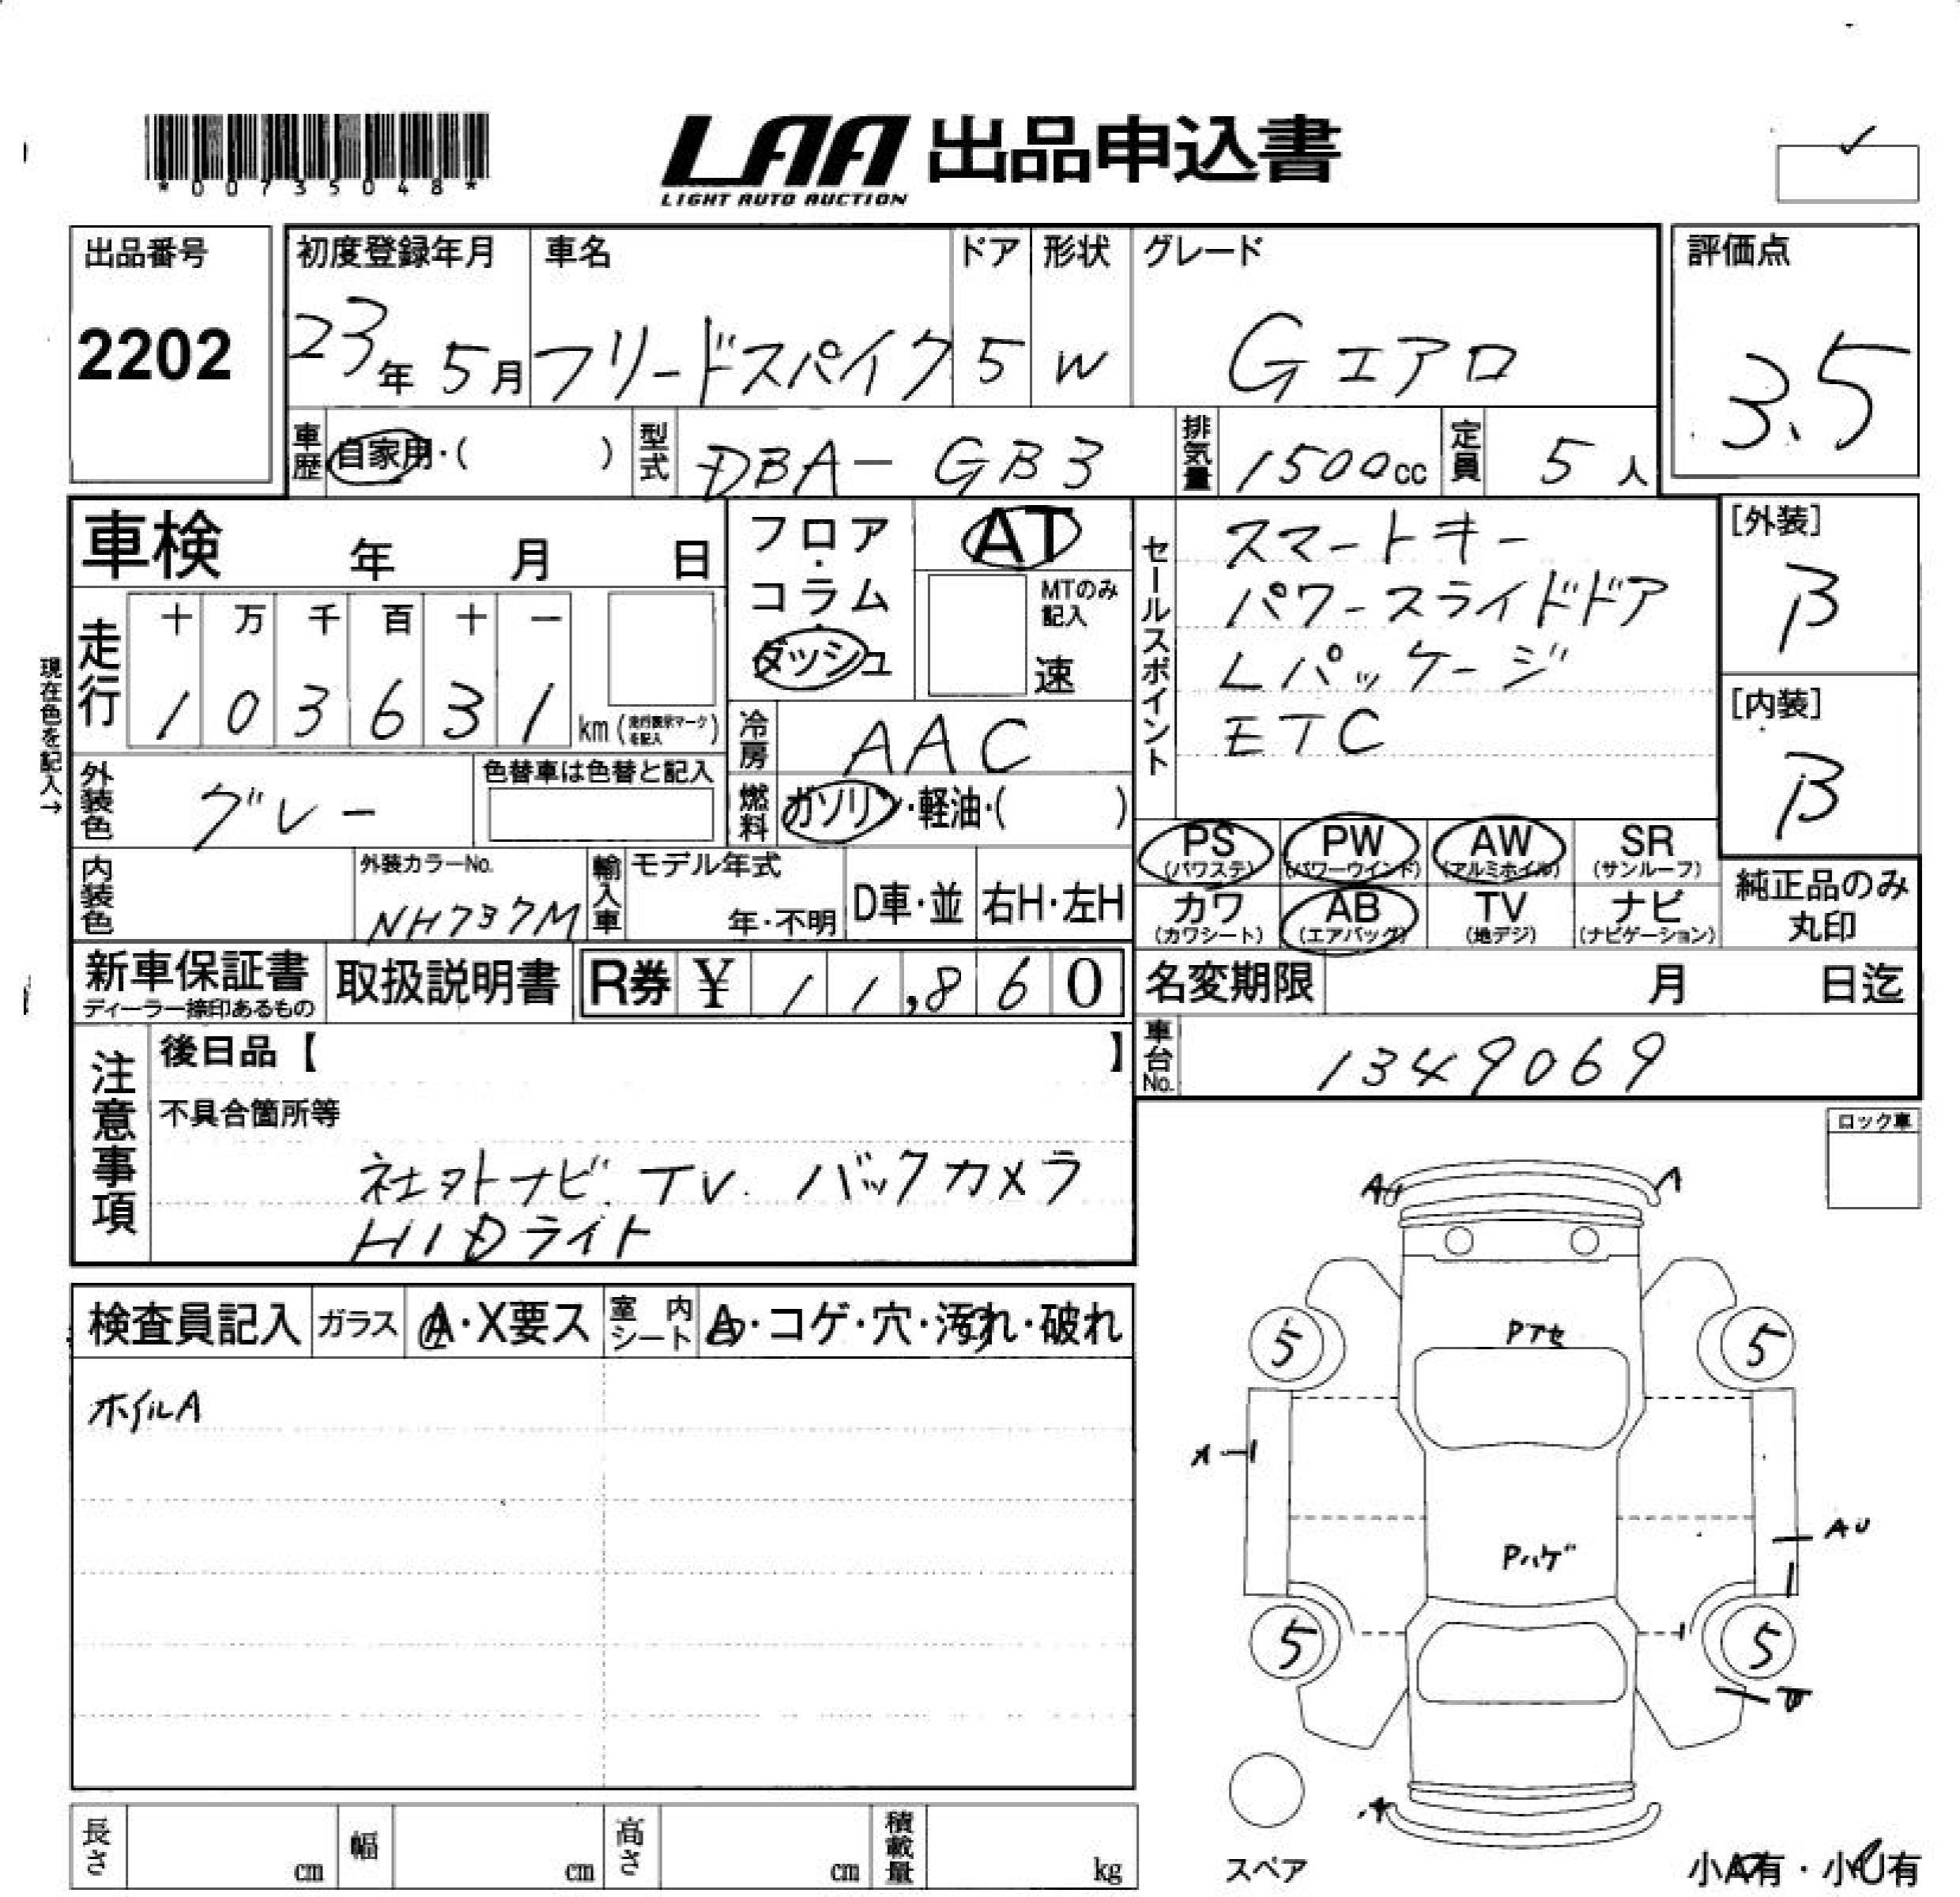 *00735048*
LAA 出品申込書
LIGHT AUTO AUCTION
出品番号
2202
初度登録年月
23年 5月
車名
フリードスパイク
ドア
5
形状
W
グレード
Gエアロ
評価点
3.5
車歴
自家用・( )
型式
DBA-GB3
排気量
1500cc
定員
5人
車検 年 月 日
現在色を記入→
走行
十 万 千 百 十 一
1 0 3 6 3 1 km
フロア・コラム・ダッシュ
AT
MTのみ記入
速
冷房
AAC
燃料
ガソリン・軽油・( )
セールスポイント
スマートキー
パワースライドドア
Lパッケージ
ETC
[外装]
B
[内装]
B
外装色
グレー
色替車は色替と記入
内装色
外装カラーNo.
NH737M
輸入車
モデル年式
年・不明
D車・並
右H・左H
PS
(パワステ)
PW
(パワーウインド)
AW
(アルミホイル)
SR
(サンルーフ)
カワ
(カワシート)
AB
(エアバッグ)
TV
(地デジ)
ナビ
(ナビゲーション)
純正品のみ
丸印
新車保証書
ディーラー捺印あるもの
取扱説明書
R券 ¥ 11,860
名変期限 月 日迄
車台No.
1349069
注意事項
後日品【 】
不具合箇所等
社外ナビ.TV.バックカメラ
HIDライト
ロック車
検査員記入
ガラス
A・X要ス
室内シート
A・コゲ・穴・汚れ・破れ
ホイルA
AU
A
5
5
Pアセ
AU
Pハゲ
5
5
スペア
長さ cm
幅 cm
高さ cm
積載量 kg
小A有・小U有